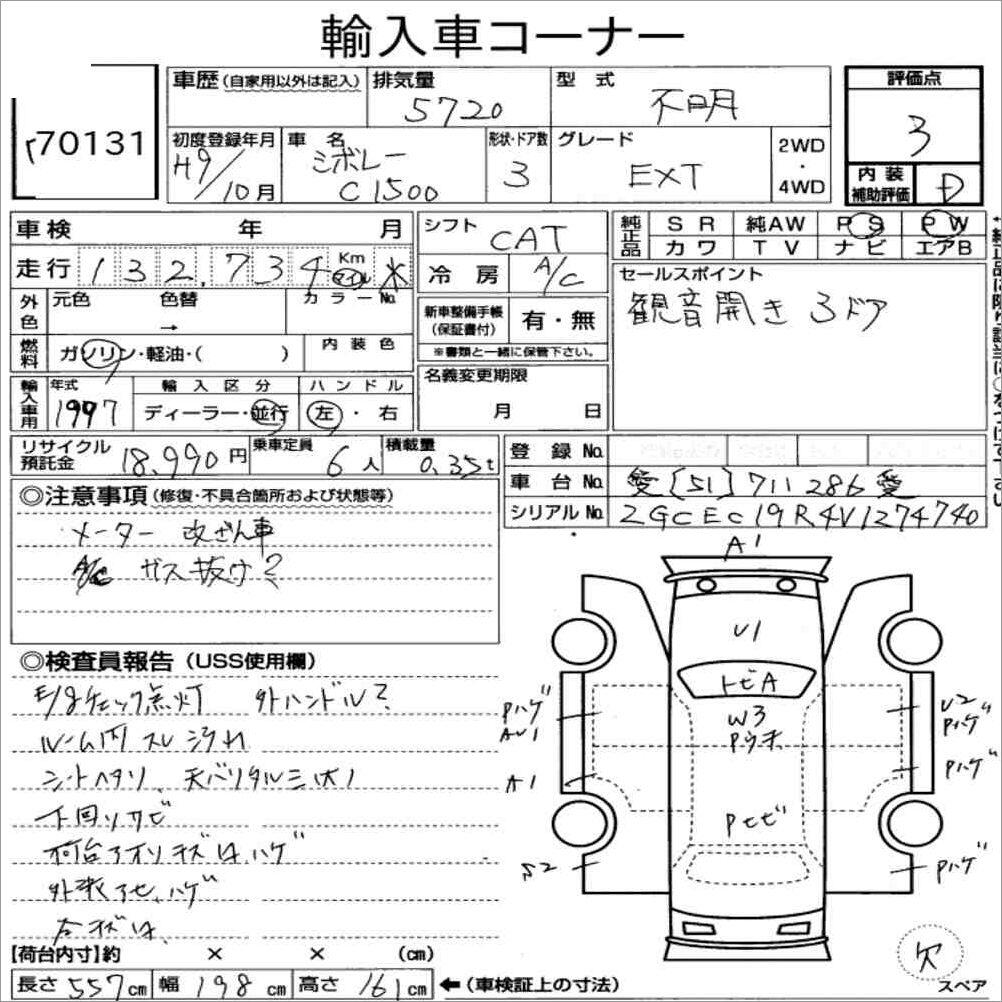 輸入車コーナー
70131
車歴(自家用以外は記入) 排気量 5720 型式 不明
評価点 3
初度登録年月 H9/10月 車名 シボレー C1500 形状・ドア数 3 グレード EXT 2WD・4WD
内装補助評価 D
車検 年 月
シフト CAT
純正品 SR 純AW PS PW
カワ TV ナビ エアB
走行 132,734 Km マイル *
冷房 A/C
セールスポイント
観音開き 3ドア
外色 元色 色替 → カラーNo.
新車整備手帳(保証書付) 有・無
※書類と一緒に保管下さい。
燃料 ガソリン・軽油・( ) 内装色
名義変更期限 月 日
輸入車用 年式 1997 輸入区分 ディーラー・並行 ハンドル 左・右
リサイクル預託金 18,990円 乗車定員 6人 積載量 0.35t
登録No.
車台No. 愛[51]711286愛
シリアルNo. 2GCEC19R4V1274740
◎注意事項(修復・不具合箇所および状態等)
メーター 改ざん車
A/C ガス抜け?
◎検査員報告(USS使用欄)
E/gチェック点灯 外ハンドル?
ルーム内 スレ 汚れ
シートヘタリ、天バリタルミ
下回りサビ
荷台 ハゲ
ハゲ
A1
U1
トビA
W3
Pハゲ
AU1
U2
Pハゲ
A1
Pハゲ
S2
Pハゲ
【荷台内寸】約 × × (cm)
長さ 557cm 幅 198cm 高さ 161cm ←(車検証上の寸法)
欠
スペア